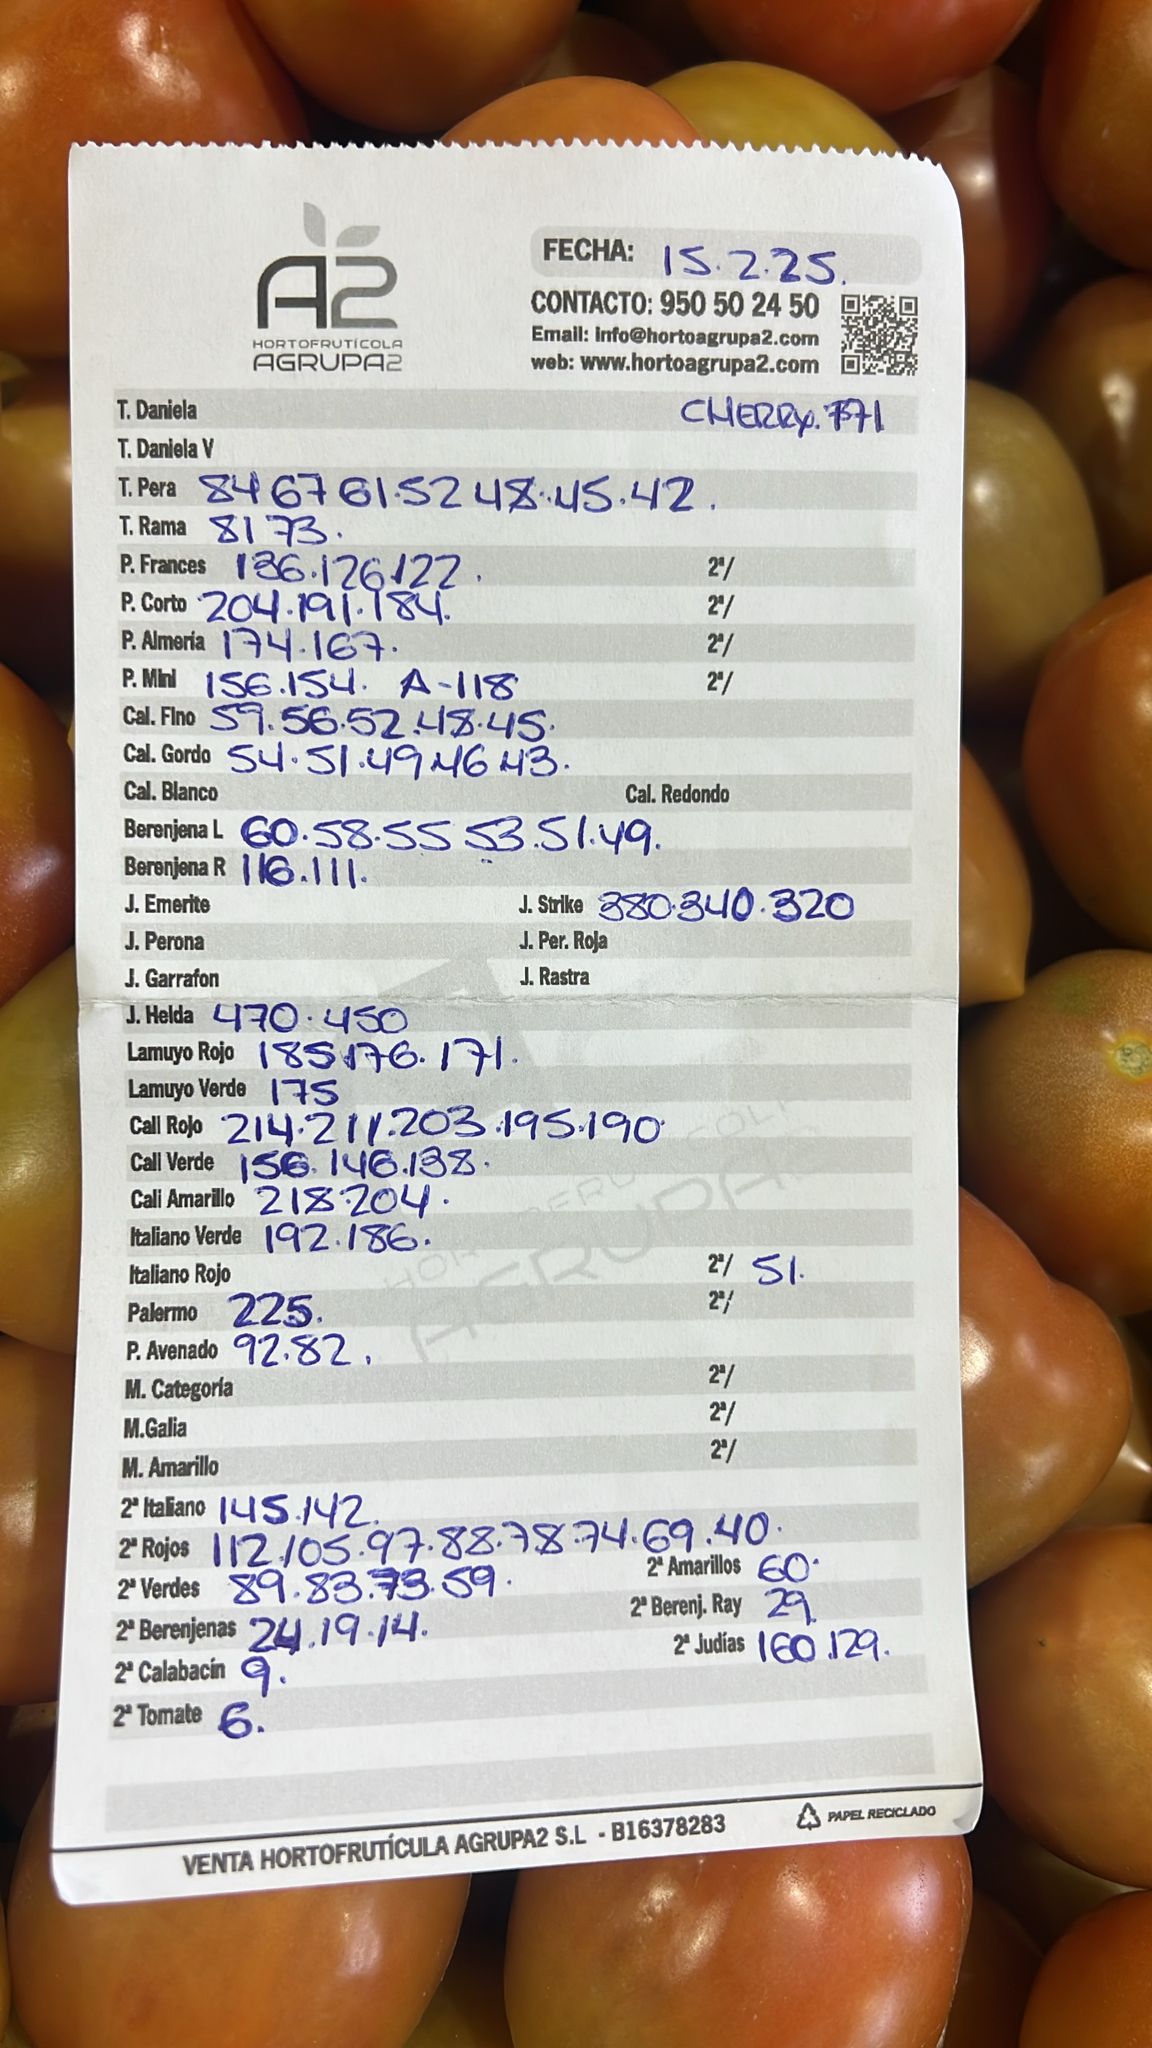 A2
HORTOFRUTÍCOLA
AGRUPA2
FECHA: 15.2.25.
CONTACTO: 950 50 24 50
Email: info@hortoagrupa2.com
web: www.hortoagrupa2.com
T. Daniela CHERRY. 771
T. Daniela V
T. Pera 84 67 61.52 48.45.42.
T. Rama 81 73.
P. Frances 136.126.122. 2ª/
P. Corto 204.191.184. 2ª/
P. Almería 174.167. 2ª/
P. Mini 156.154. A-118 2ª/
Cal. Fino 59.56.52.48.45.
Cal. Gordo 54.51.49.46.43.
Cal. Blanco Cal. Redondo
Berenjena L 60.58.55 53.51.49.
Berenjena R 116.111.
J. Emerite J. Strike 380.340.320
J. Perona J. Per. Roja
J. Garrafon J. Rastra
J. Helda 470.450
Lamuyo Rojo 185.176.171.
Lamuyo Verde 175
Cali Rojo 214.211.203.195.190
Cali Verde 156.146.138.
Cali Amarillo 218.204.
Italiano Verde 192.186.
Italiano Rojo 2ª/ 51.
Palermo 225. 2ª/
P. Avenado 92.82.
M. Categoría 2ª/
M.Galia 2ª/
M. Amarillo 2ª/
2ª Italiano 145.142.
2ª Rojos 112.105.97.88.78.74.69.40.
2ª Verdes 89.83.73.59. 2ª Amarillos 60.
2ª Berenjenas 24.19.14. 2ª Berenj. Ray 29.
2ª Calabacín 9. 2ª Judías 160.129.
2ª Tomate 6.
VENTA HORTOFRUTÍCULA AGRUPA2 S.L - B16378283
PAPEL RECICLADO